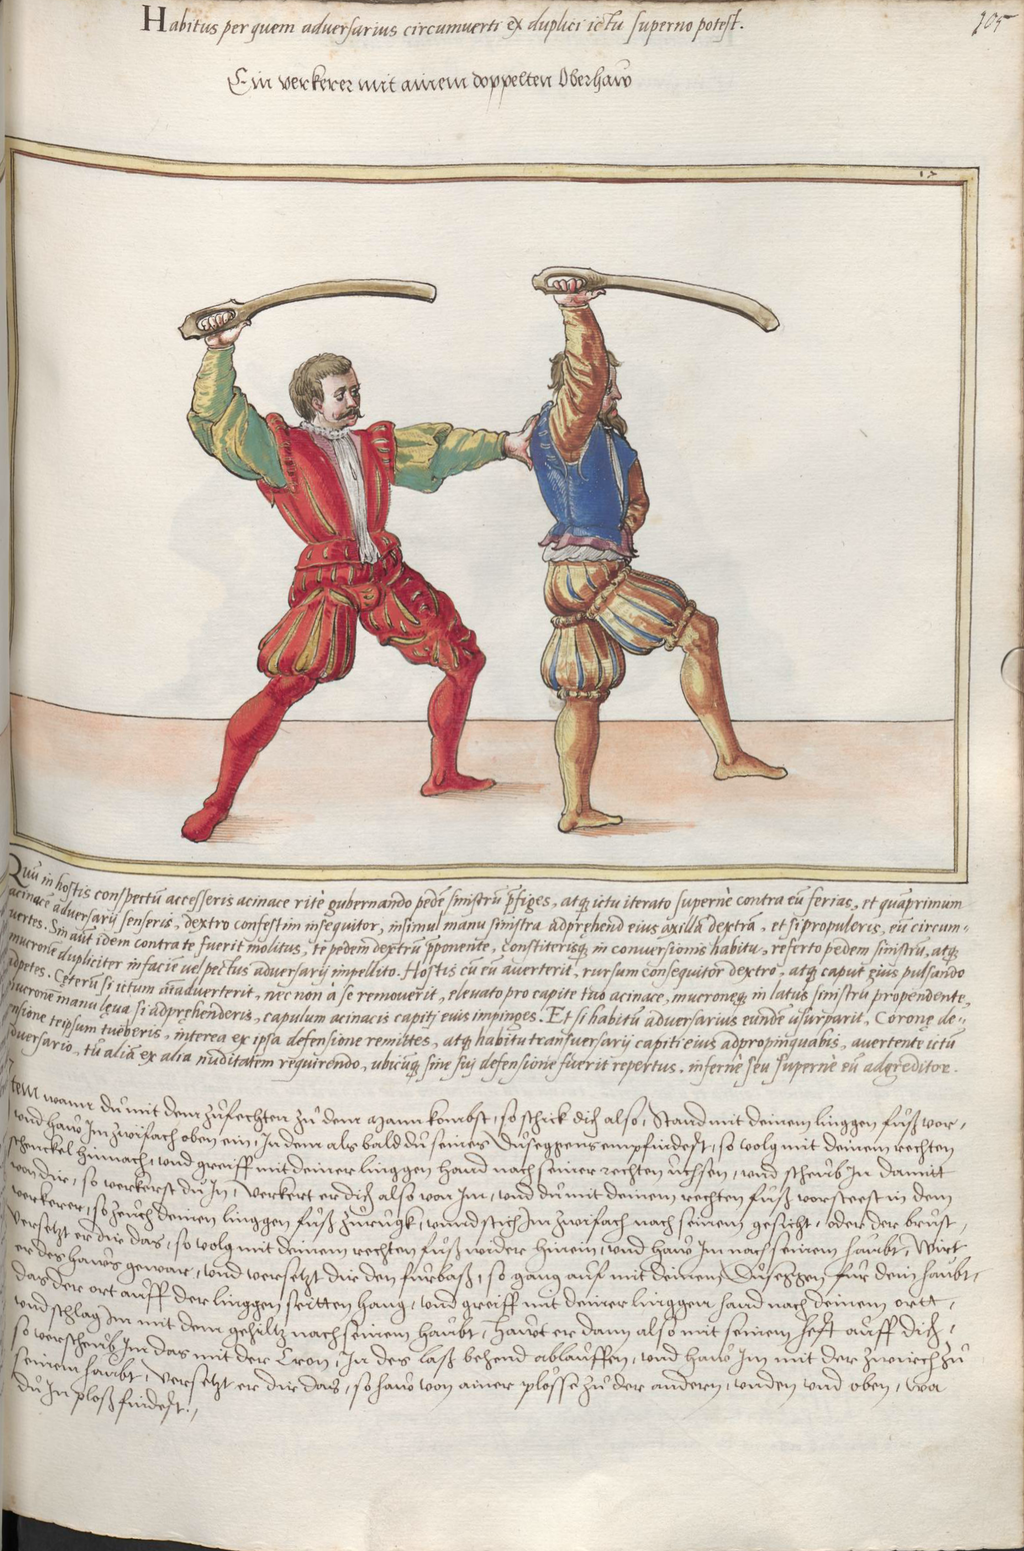 Habitus per quem adversarius circumverti ex duplici ictu superno potest.
105
Ein verkerer mit ainem doppelten Oberhaw
17
Quũ in hostis conspectũ accesseris acinace ritè gubernando pedẽ sinistrũ p̃figes, atq; ictu iterato supernè contra eũ ferias, et quãprimum
acinacẽ adversarij senseris, dextro confestim insequitor, insimul manu sinistra adprehend eius axillã dextrã, et si propuleris, eũ circum-
vertes. Sin aũt idem contra te fuerit molitus, te pedem dextrũ p̃ponente, constiterisq; in conversionis habitu, referto pedem sinistrũ, atq;
mucronẽ dupliciter in faciẽ vel pectus adversarij impellito. Hostis cũ eũ averterit, rursum consequitor dextro, atq; caput eius pulsando
adpetes. Ceterũ si ictum aĩadverterit, nec non à se removerit, elevato pro capite tuo acinace, mucroneq; in latus sinistrũ propendente,
mucronẽ manu leva si adprehenderis, capulum acinacis capitj euis impinges. Et si habitũ adversarius eundẽ usurparit, Coronę de-
nsione teipsum tueberis, interea ex ipsa defensione remittes, atq; habitu transversarij capiti eius adpropinquabis, avertente ictũ
dversario, tũ aliã ex alia nuditatem requirendo, ubicuq; sine sui defensione fuerit repertus, infernè seu supernè eũ adgreditor.
Item wann du mit dem zufechten zu dem Mann kombst, so schick dich also, Stand mit deinem linggen fuß vor,
vnd haw Im zwifach oben ein, In dem als bald du seines Duseggens empfindest, so volg mit deinem rechten
schenckel hinnach, vnd greiff mit deiner linggen hand nach seiner rechten üchsen, vnd scheub In damit
von dir, so verkerst du In, Verkert er dich also von Im, vnd du mit deinem rechten fuß vorsteest in dem
verkerer, so zeuch deinen linggen fuß zurugk, vnnd stich Im zwifach nach seinem gesicht, oder der brust,
versetzt er dir das, so volg mit deinem rechten fuß wider hinein, vnd haw Im nach seinem haubt, Wirt
er des haws gewar, vnd versetzt dir den furbaß, so gang auf mit deinem Duseggen fur dein haubt,
das der ort auff der linggen seitten hang, vnd greiff mit deiner linggen hand nach deinem ortt,
vnd schlag Im mit dem gehiltz nach seinem haubt, Hawt er dann also mit seinem hefft auff dich,
so verscheub Im das mit der Cron, In des laß behend ablauffen, vnd haw Im mit der zwirch zu
seinem haubt, Versetzt er dir das, so haw von ainer plösse zu der andern, vnden vnd oben, wa
du In ploß findest.